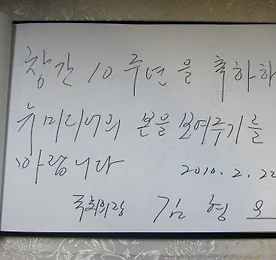 창간 10주년을 축하하
뉴미디어의 본을 보여주기를
바랍니다
2010. 2. 22
국회의장 김 형 오